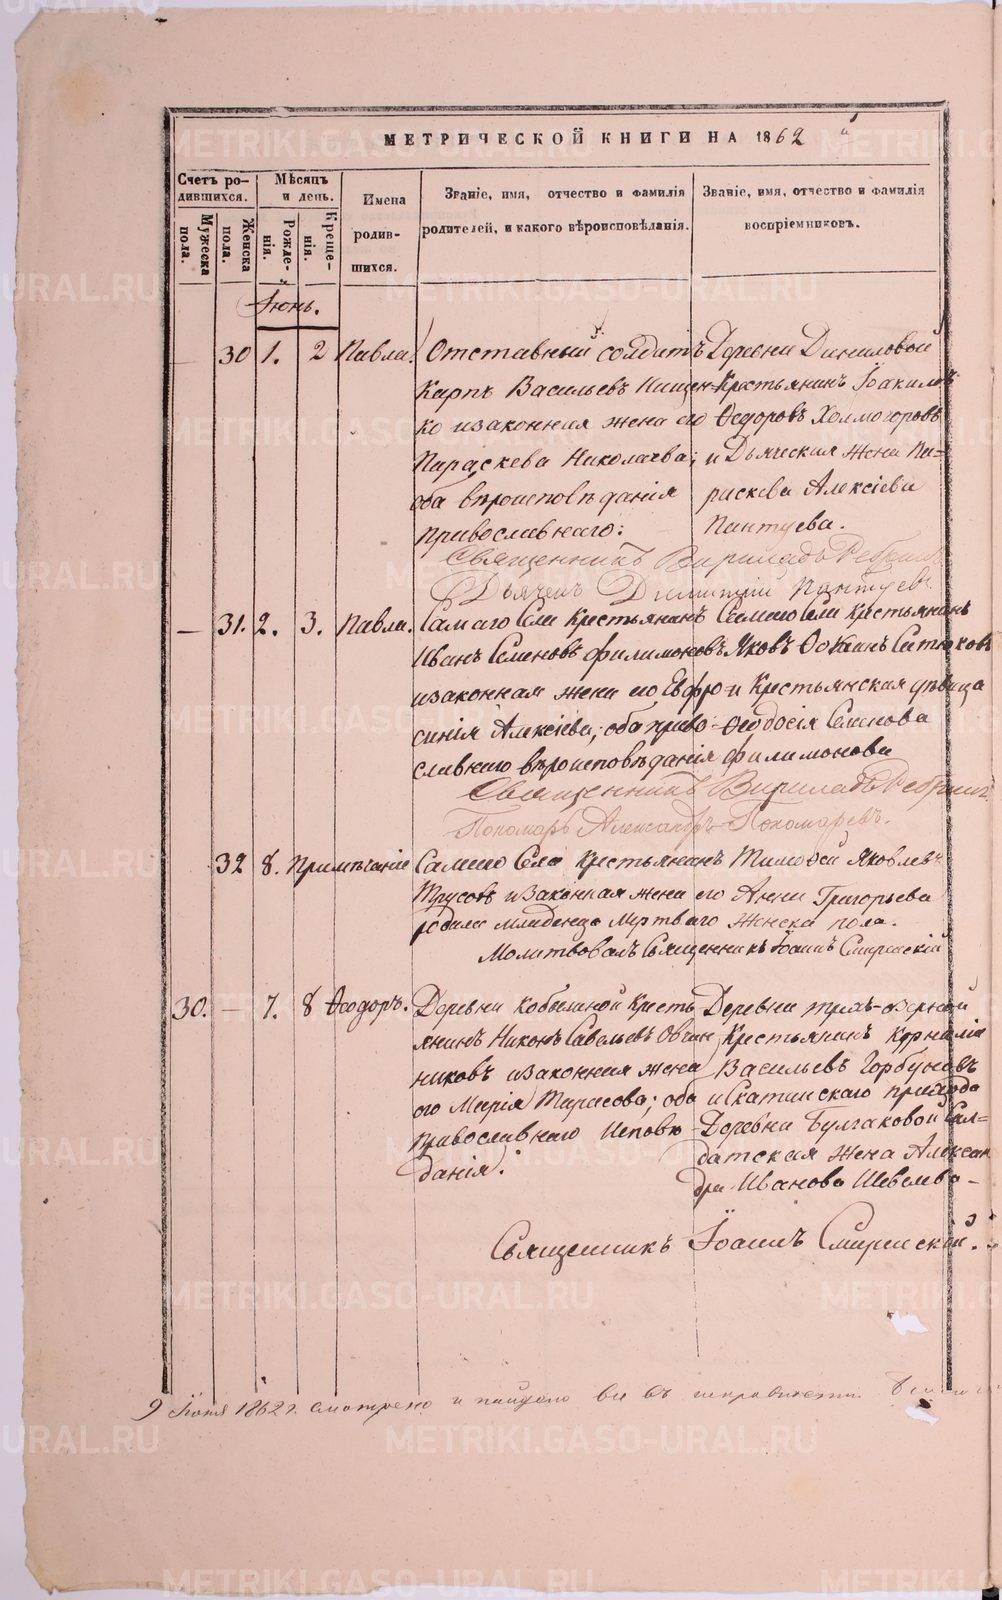 МЕТРИЧЕСКОЙ КНИГИ НА 1862
Счетъ ро-
дившихся.
Мѣсяцъ
и день.
Имена
родив-
шихся.
Званіе, имя, отчество и фамилія
родителей, и какого вѣроисповѣданія.
Званіе, имя, отчество и фамилія
воспріемниковъ.
Мужеска
пола.
Женска
пола.
Рожде-
нія.
Креще-
нія.
Іюнь.
— 30 1. 2 Павла.
Отставный солдатъ
Карпъ Васильевъ Нищен-
ко и законная жена его
Параскева Николаева;
оба вѣроисповѣданія
православнаго:
Деревни Даниловой
Крестьянинъ Іоакимъ
Ѳедоровъ Холмогоровъ
и Дьяческая жена Па-
раскева Алексіева
Пантуева.
Священникъ
Дьячекъ Димитрій Пантуевъ
— 31. 2. 3. Павла.
Самаго Села Крестьянинъ
Иванъ Семеновъ Филимоновъ
и законная жена его Евфро-
синія Алексіева; оба право-
славнаго вѣроисповѣданія
Самаго Села Крестьянинъ
Яковъ
и Крестьянская дѣвица
Ѳеодосія Семенова
Филимонова
Священникъ
Пономарь Александръ Пономаревъ.
32 8. Примѣчаніе
Самаго Села Крестьянинъ Тимоѳей Яковлевъ
Трусовъ и законная жена его Анна Григорьева
родила младенца мертваго женска пола.
Молитвовалъ Священникъ Іоаннъ Смиренскій
30. — 7. 8 Ѳеодоръ.
Деревни Кобылиной Кресть-
янинъ Никонъ Савельевъ Овчин-
никовъ и законная жена
его Марія Тарасова; оба
православнаго исповѣ-
данія.
Деревни трехъ-озерной
Крестьянинъ Корнилій
Васильевъ Горбуновъ
и Скатинскаго прихода
Деревни Булгаковой Сал-
датская жена Алексан-
дра Иванова Шевелева-
Священникъ Іоаннъ Смиренскій.
9 Іюня 1862 г. смотрено и найдено все въ исправности.
METRIKI.GASO-URAL.RU